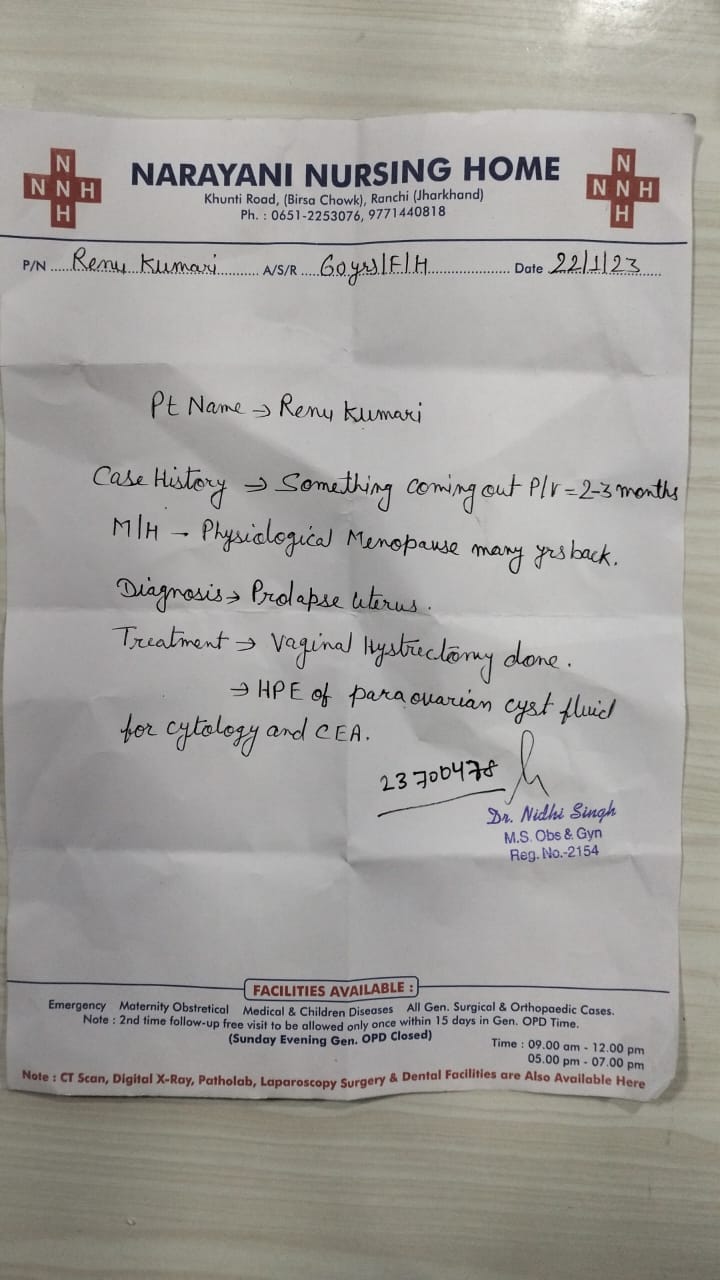 N
N N H
H
NARAYANI NURSING HOME
Khunti Road, (Birsa Chowk), Ranchi (Jharkhand)
Ph. : 0651-2253076, 9771440818
N
N N H
H
P/N ..... Renu Kumari ..... A/S/R ..... 60yrs/F/H ..... Date 22/1/23
Pt Name → Renu Kumari
Case History → Something coming out P/V = 2-3 months
M/H - Physiological Menopause many yrs back.
Diagnosis → Prolapse Uterus.
Treatment → Vaginal Hystrectomy done.
→ HPE of paraovarian cyst fluid
for cytology and CEA.
23700478
Dr. Nidhi Singh
M.S. Obs & Gyn
Reg. No.-2154
FACILITIES AVAILABLE :
Emergency Maternity Obstretical Medical & Children Diseases All Gen. Surgical & Orthopaedic Cases.
Note : 2nd time follow-up free visit to be allowed only once within 15 days in Gen. OPD Time.
(Sunday Evening Gen. OPD Closed)
Time : 09.00 am - 12.00 pm
05.00 pm - 07.00 pm
Note : CT Scan, Digital X-Ray, Patholab, Laparoscopy Surgery & Dental Facilities are Also Available Here